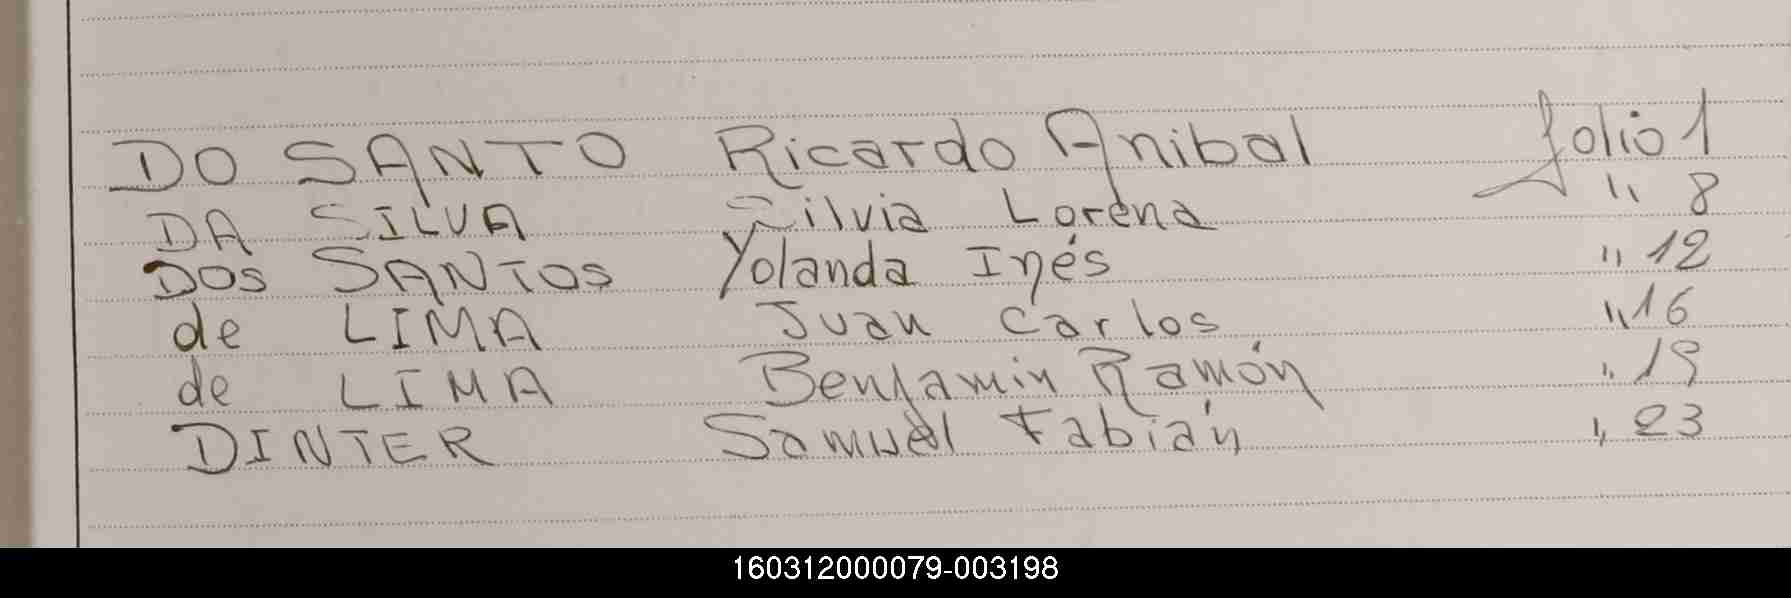 DO SANTO Ricardo Anibal folio 1
DA SILVA Silvia Lorena " 8
DOS SANTOS Yolanda Inés " 12
de LIMA Juan Carlos " 16
de LIMA Benjamin Ramón " 19
DINTER Samuel Fabián " 23
160312000079-003198